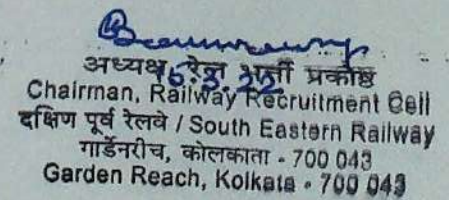 अध्यक्ष, रेल भर्ती प्रकोष्ठ
Chairman, Railway Recruitment Cell
दक्षिण पूर्व रेलवे / South Eastern Railway
गार्डेनरीच, कोलकाता - 700 043
Garden Reach, Kolkata - 700 043